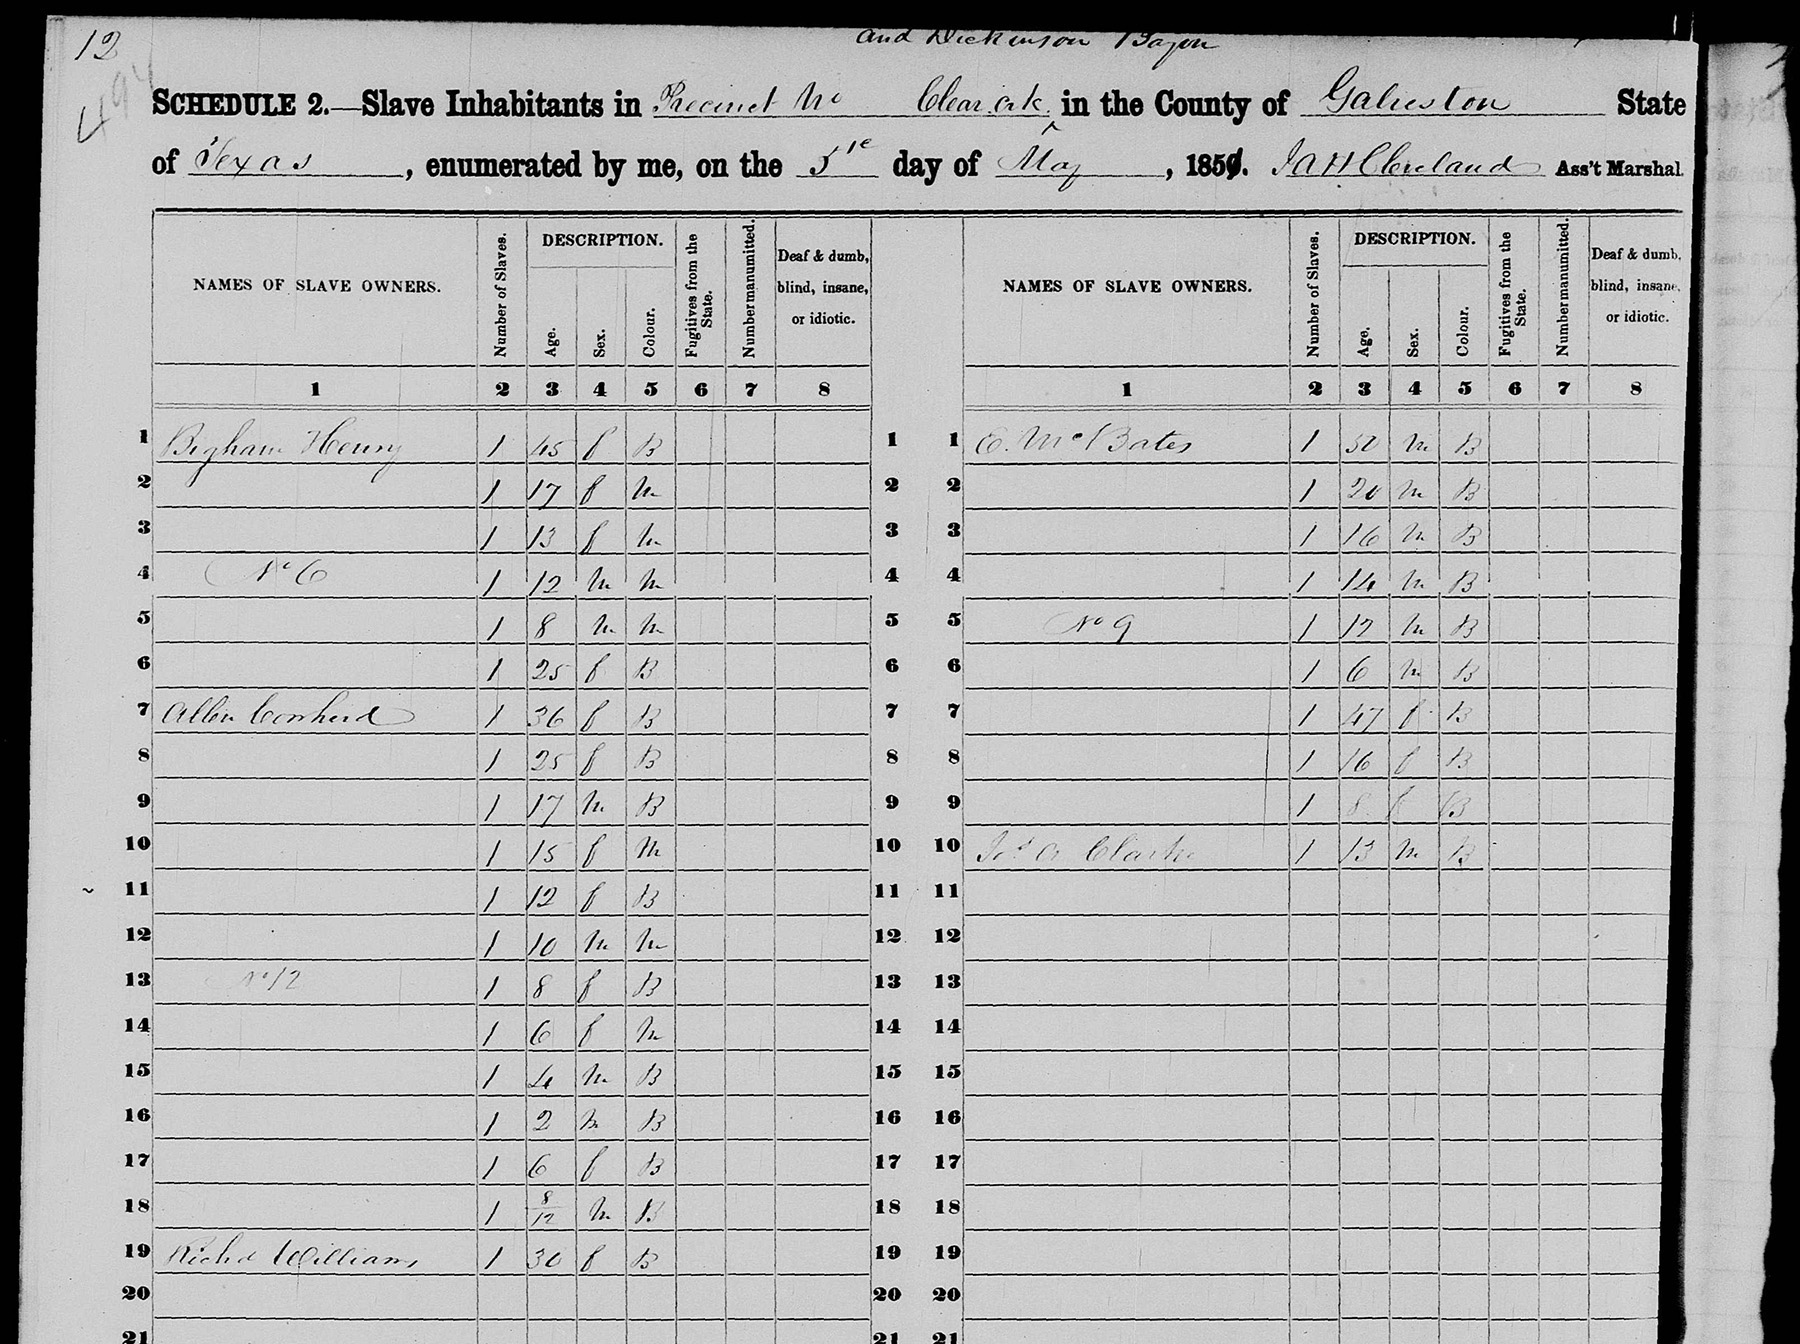 12
and Dickinson Bayou
494
SCHEDULE 2.—Slave Inhabitants in Precinct No Clear crk. in the County of Galveston State
of Texas, enumerated by me, on the 5 day of May, 185. Cleveland Ass't Marshal.
NAMES OF SLAVE OWNERS. Number of Slaves. DESCRIPTION. Age. Sex. Colour. Fugitives from the State. Number manumitted. Deaf & dumb, blind, insane, or idiotic.
NAMES OF SLAVE OWNERS. Number of Slaves. DESCRIPTION. Age. Sex. Colour. Fugitives from the State. Number manumitted. Deaf & dumb, blind, insane, or idiotic.
1 2 3 4 5 6 7 8
1 2 3 4 5 6 7 8
1 Bigham Henry 1 45 f B 1
2 1 17 f m 2
3 1 13 f m 3
4 No 6 1 12 m m 4
5 1 8 m m 5
6 1 25 f B 6
7 Allen 1 36 f B 7
8 1 25 f B 8
9 1 17 m B 9
10 1 15 f m 10
11 1 12 f B 11
12 1 10 m m 12
13 No 12 1 8 f B 13
14 1 6 f m 14
15 1 4 m B 15
16 1 2 m B 16
17 1 6 f B 17
18 1 8/12 m B 18
19 Richd Williams 1 30 f B 19
20 20
21 21
1 E. Mc Bates 1 50 m B
2 1 20 m B
3 1 16 m B
4 1 14 m B
5 No 9 1 12 m B
6 1 6 m B
7 1 47 f B
8 1 16 f B
9 1 8 f B
10 Clarke 1 13 m B
11
12
13
14
15
16
17
18
19
20
21